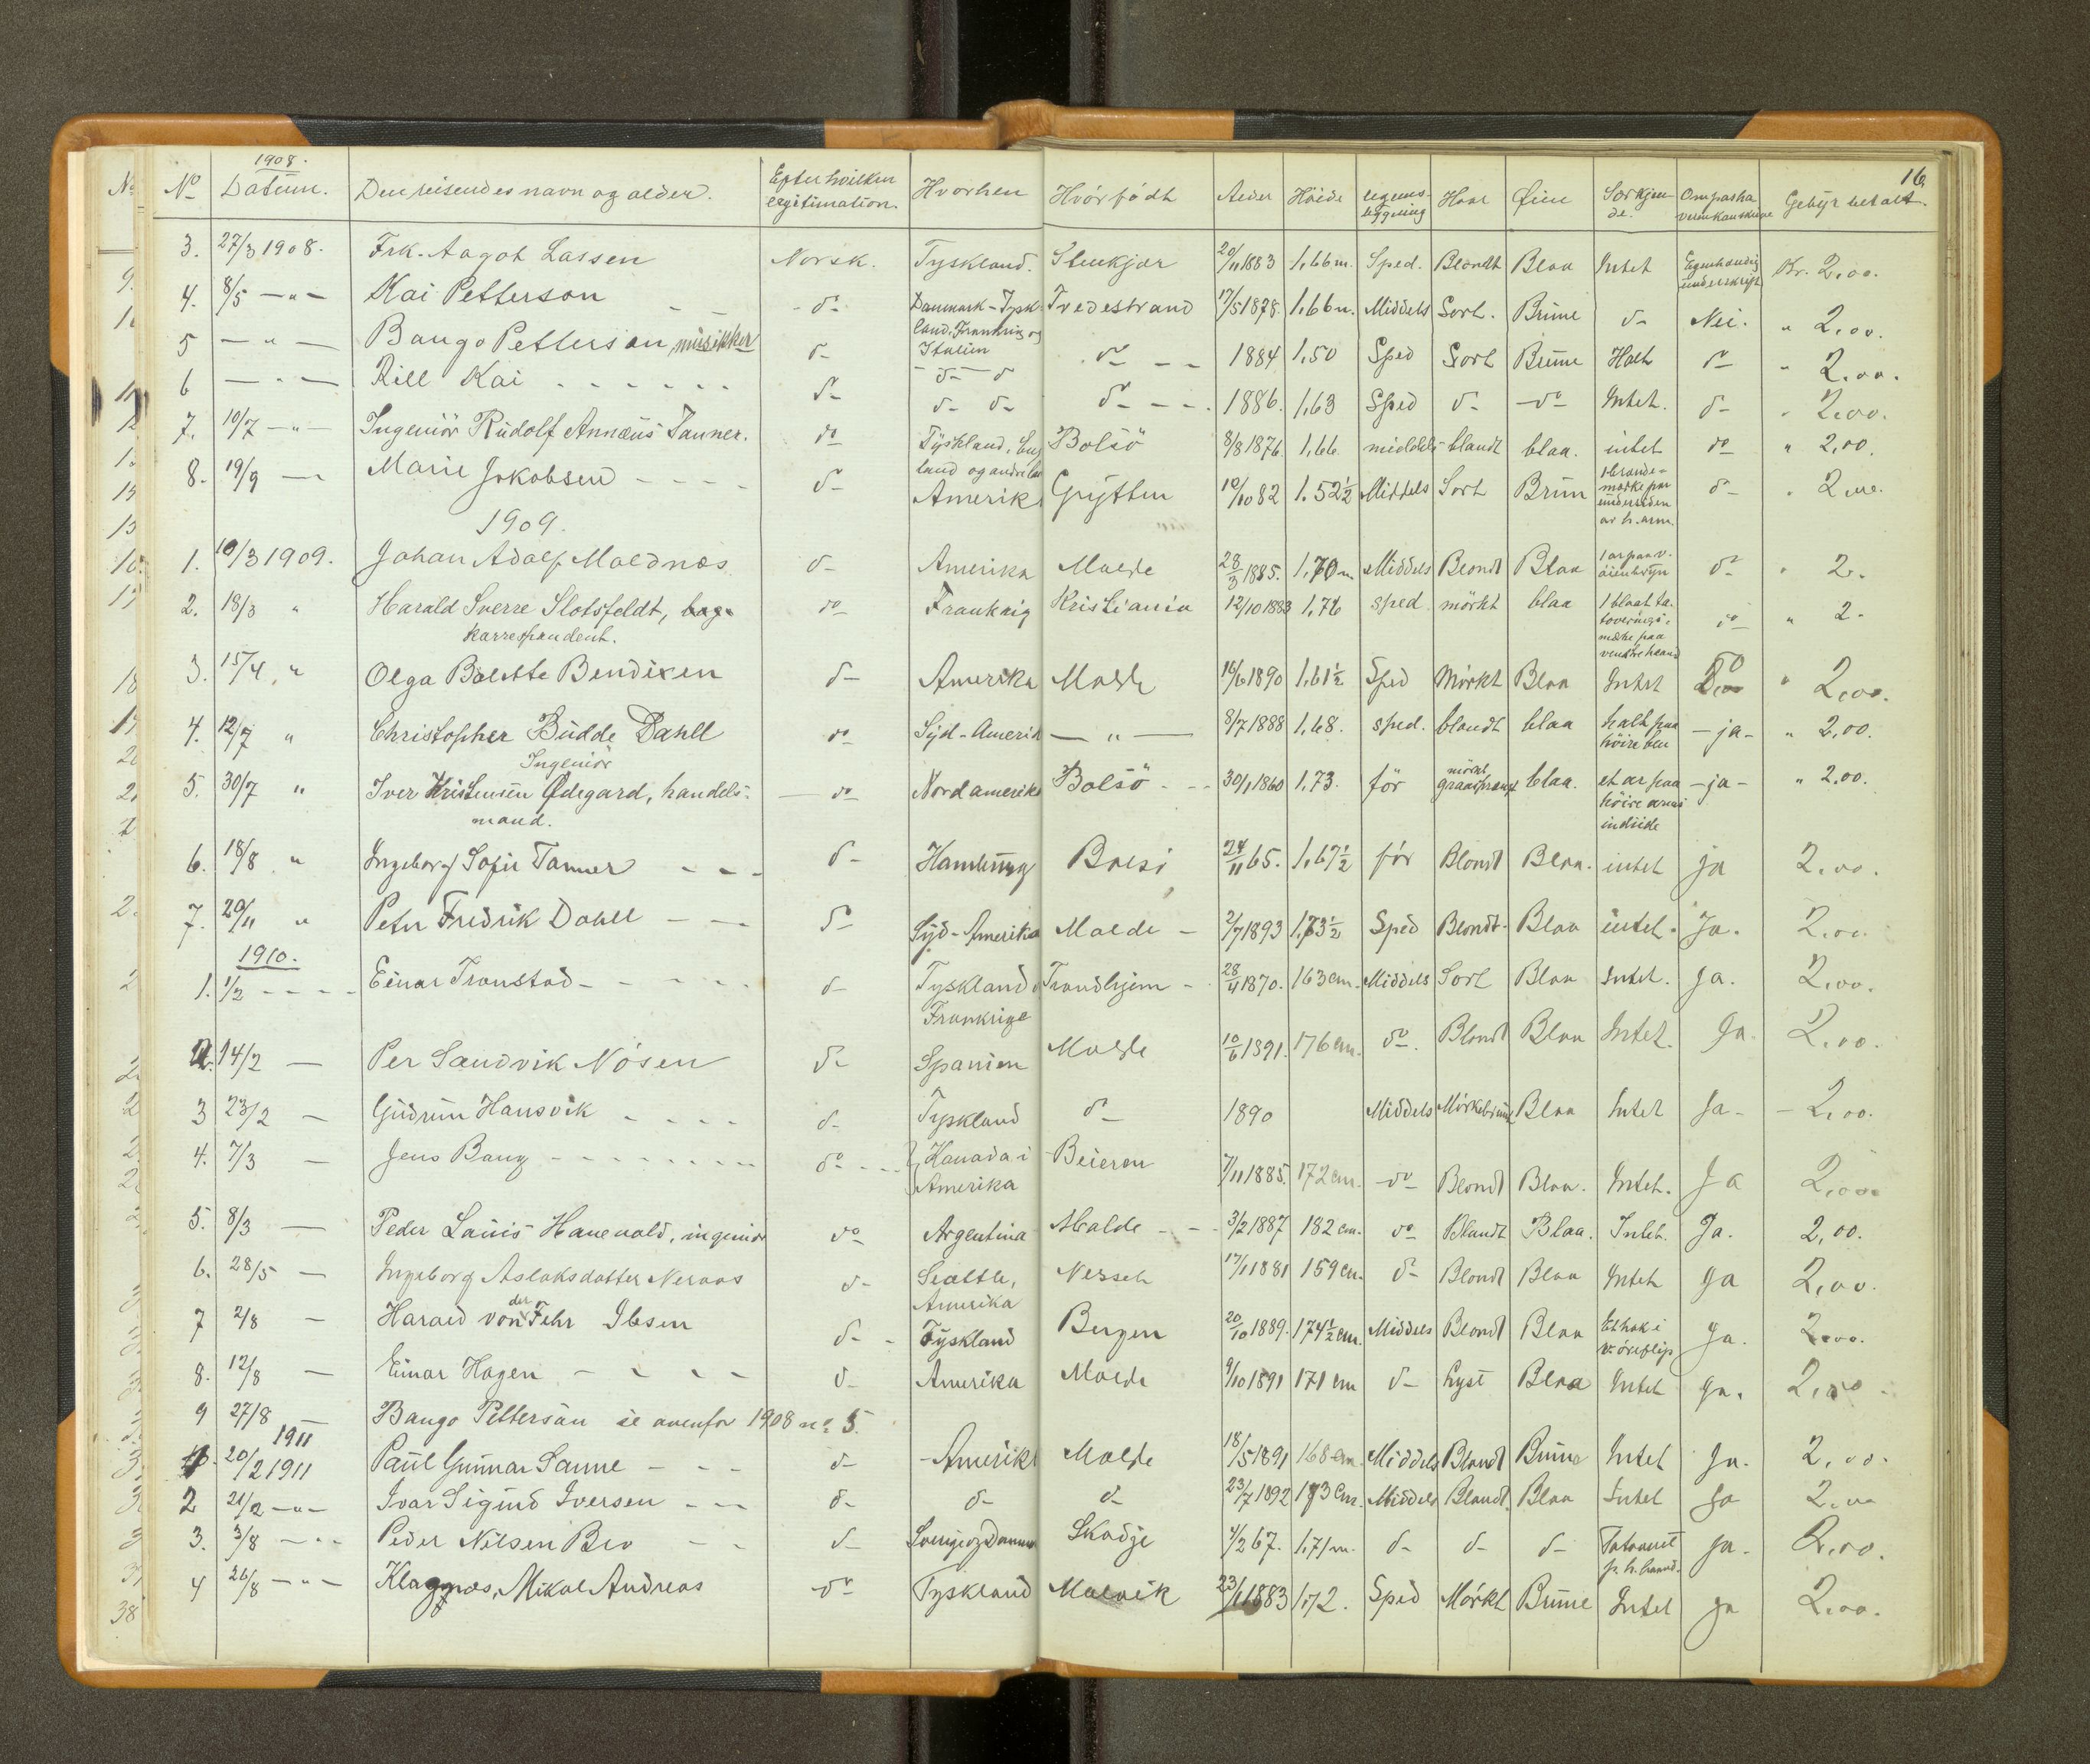 1908.
16.
No Datum. Den reisendes navn og alder. Efter hvilken legitimation. Hvorhen Hvor födt Alder Höide legems-bygning Haar Øine Særkjen-de. Om pasha-veren kan skrive Gebyr betalt.
3. 27/3 1908. Frk. Aagot Lassen Norsk. Tyskland. Stenkjær 20/11 1883 1,66 m. Sped. Blondt Blaa Intet Egenhændig underskrift Kr. 2,00.
4. 8/5 —"— Kai Petterson - do- Danmark-Tysk-land, Frankrig og Italien Tvedestrand 17/5 1878. 1,66 m. Middels Sort. Brune do- Nei. " 2,00.
5 —"— Bango Petterson, musikker do- - do- do do - - 1884 1,50 Sped Sort Brune Halt do- " 2,00.
6 —"— Rill Kai - - - - - - do- do- do- do- - -. 1886. 1,63 Sped do- -do- Intet. do- " 2,00.
7. 10/7 —"— Ingeniör Rudolf Annæus Tanner. do Tyskland, Eng land og andre lan Bolsö 8/8 1876. 1,66. middels blandt blaa. intet do " 2,00.
8. 19/9 — Marie Jakobsen - - - - do- Amerik Grytten 10/10 82 1.52½ Middels Sort Brun 1 brande-mærke paa undersiden av h. arm. do- " 2,00.
1909.
1. 10/3 1909. Johan Adolf Moldnæs do- Amerika Molde 28/3 1885. 1,70 m. Middels Blondt Blaa 1 ar paa v. öienbryn do- " 2.
2. 18/3 " Harald Sverre Slotsfeldt, bog-karrespandent. do Frankrig Kristiania 12/10 1883 1,76 sped mörkt blaa 1 blaat ta-toverings-mærke paa venstre haand do " 2.
3. 15/4 " Olga Bolette Bendixen do- Amerika Molde 16/6 1890 1,61½ Sped Mörkt Blaa Intet Do " 2,00.
4. 12/7 " Christopher Budde Dahll Ingeniör do Syd-Amerik — " — 8/7 1888 1,68. sped. blandt blaa halt paa höire ben - ja - " 2,00.
5. 30/7 " Iver Kristensen Ødegard, handels-mand. — do Nordamerik Bolsö - - 30/1 1860 1,73. för mörkt graasprængt blaa. et ar paa höire arms indside - ja - " 2,00.
6. 18/8 " Ingeborg Sofie Tanner - - - do- Hamburg Bolsö 24/11 65. 1,67½ för Blondt Blaa. intet ja 2,00.
7. 20/11 " Peter Fredrik Dahll - - do Syd-Amerika Molde - 2/7 1893 1,73½ Sped Blondt- Blaa intet. Ja. 2,00
1910.
1. 1/2 - - - - Einar Tronstad - - - - - do- Tyskland Frankrige Trondhjem - 28/4 1870. 163 cm. Middels Sort Blaa Intet. Ja. 2,00.
2. 14/2 — Per Sandvik Nösen do- Spanien Molde 10/6 1891. 176 cm. do. Blondt Blaa Intet. Ja. 2,00.
3 23/2 — Gudrun Hansvik - - - - do- Tyskland do- 1890 Middels Mörkebrune Blaa Intet Ja - - 2,00.
4. 7/3 — Jens Bang - - - - - - - - do- - - - Kanada i Amerika Beieren 7/11 1885. 172 cm. -do- Blondt Blaa. Intet. Ja 2,00
5. 8/3 — Peder Lauis Hanevold, ingeniör do Argentina Molde - - - 3/2 1887 182 cm. do Blandt Blaa. Intet. Ja. 2,00.
6. 28/5 — Ingeborg Aslaksdatter Neraas do- Seattle, Amerika Nesset 17/1 1881 159 cm. do- Blondt Blaa Intet ja 2,00.
7 2/8 — Harald von der Fehr Ibsen do- - Tyskland Bergen 20/10 1889. 174½ cm. Middels Blondt Blaa Et hak i v. öreflip ja. 2,00.
8. 12/8 — Einar Hagen - - - - do- Amerika Molde 9/10 1891 171 cm do- Lyst Blaa Intet Ja. 2,00 -
9 27/8 — Bango Petterson se ovenfor 1908 no. 5.
1911
1. 20/2 1911 Paul Gunnar Sanne - - - do- - Amerik Molde 18/5 1891 168 cm. Middels Blondt Brune Intet Ja. 2,00.
2 21/2 —"— Ivar Sigurd Iversen - - - do- do- do- 23/7 1892 173 cm. Middels Blandt. Blaa Intet Ja 2,00
3. 3/8 —"— Peder Nilsen Bro - - do- Sverige og Danm Skodje 4/2 67. 1,71 m. do- do- do- Tatoveret p. h. haand. ja. 2,00.
4 26/8 —"— Klagnæs, Mikal Andreas do Tyskland Malvik 23/1 1883 1,72. Sped Mörkt Brune Intet ja 2,00.